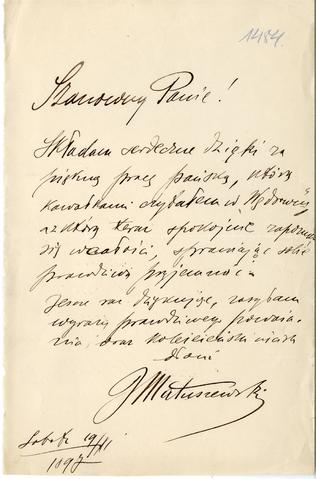 1484.
Szanowny Panie!
Składam serdeczne dzięki za
piękną pracę pańską, którą
kawałkami czytałem w
a z którą teraz spokojnie zapoznam
się w całości, sprawiając sobie
prawdziwą przyjemność.
Jeszcze raz dziękując, zasyłam
wyrazy prawdziwego poważa-
nia oraz koleżeński uścisk
dłoni
Matuszewski
Sobota 19/VI
1897